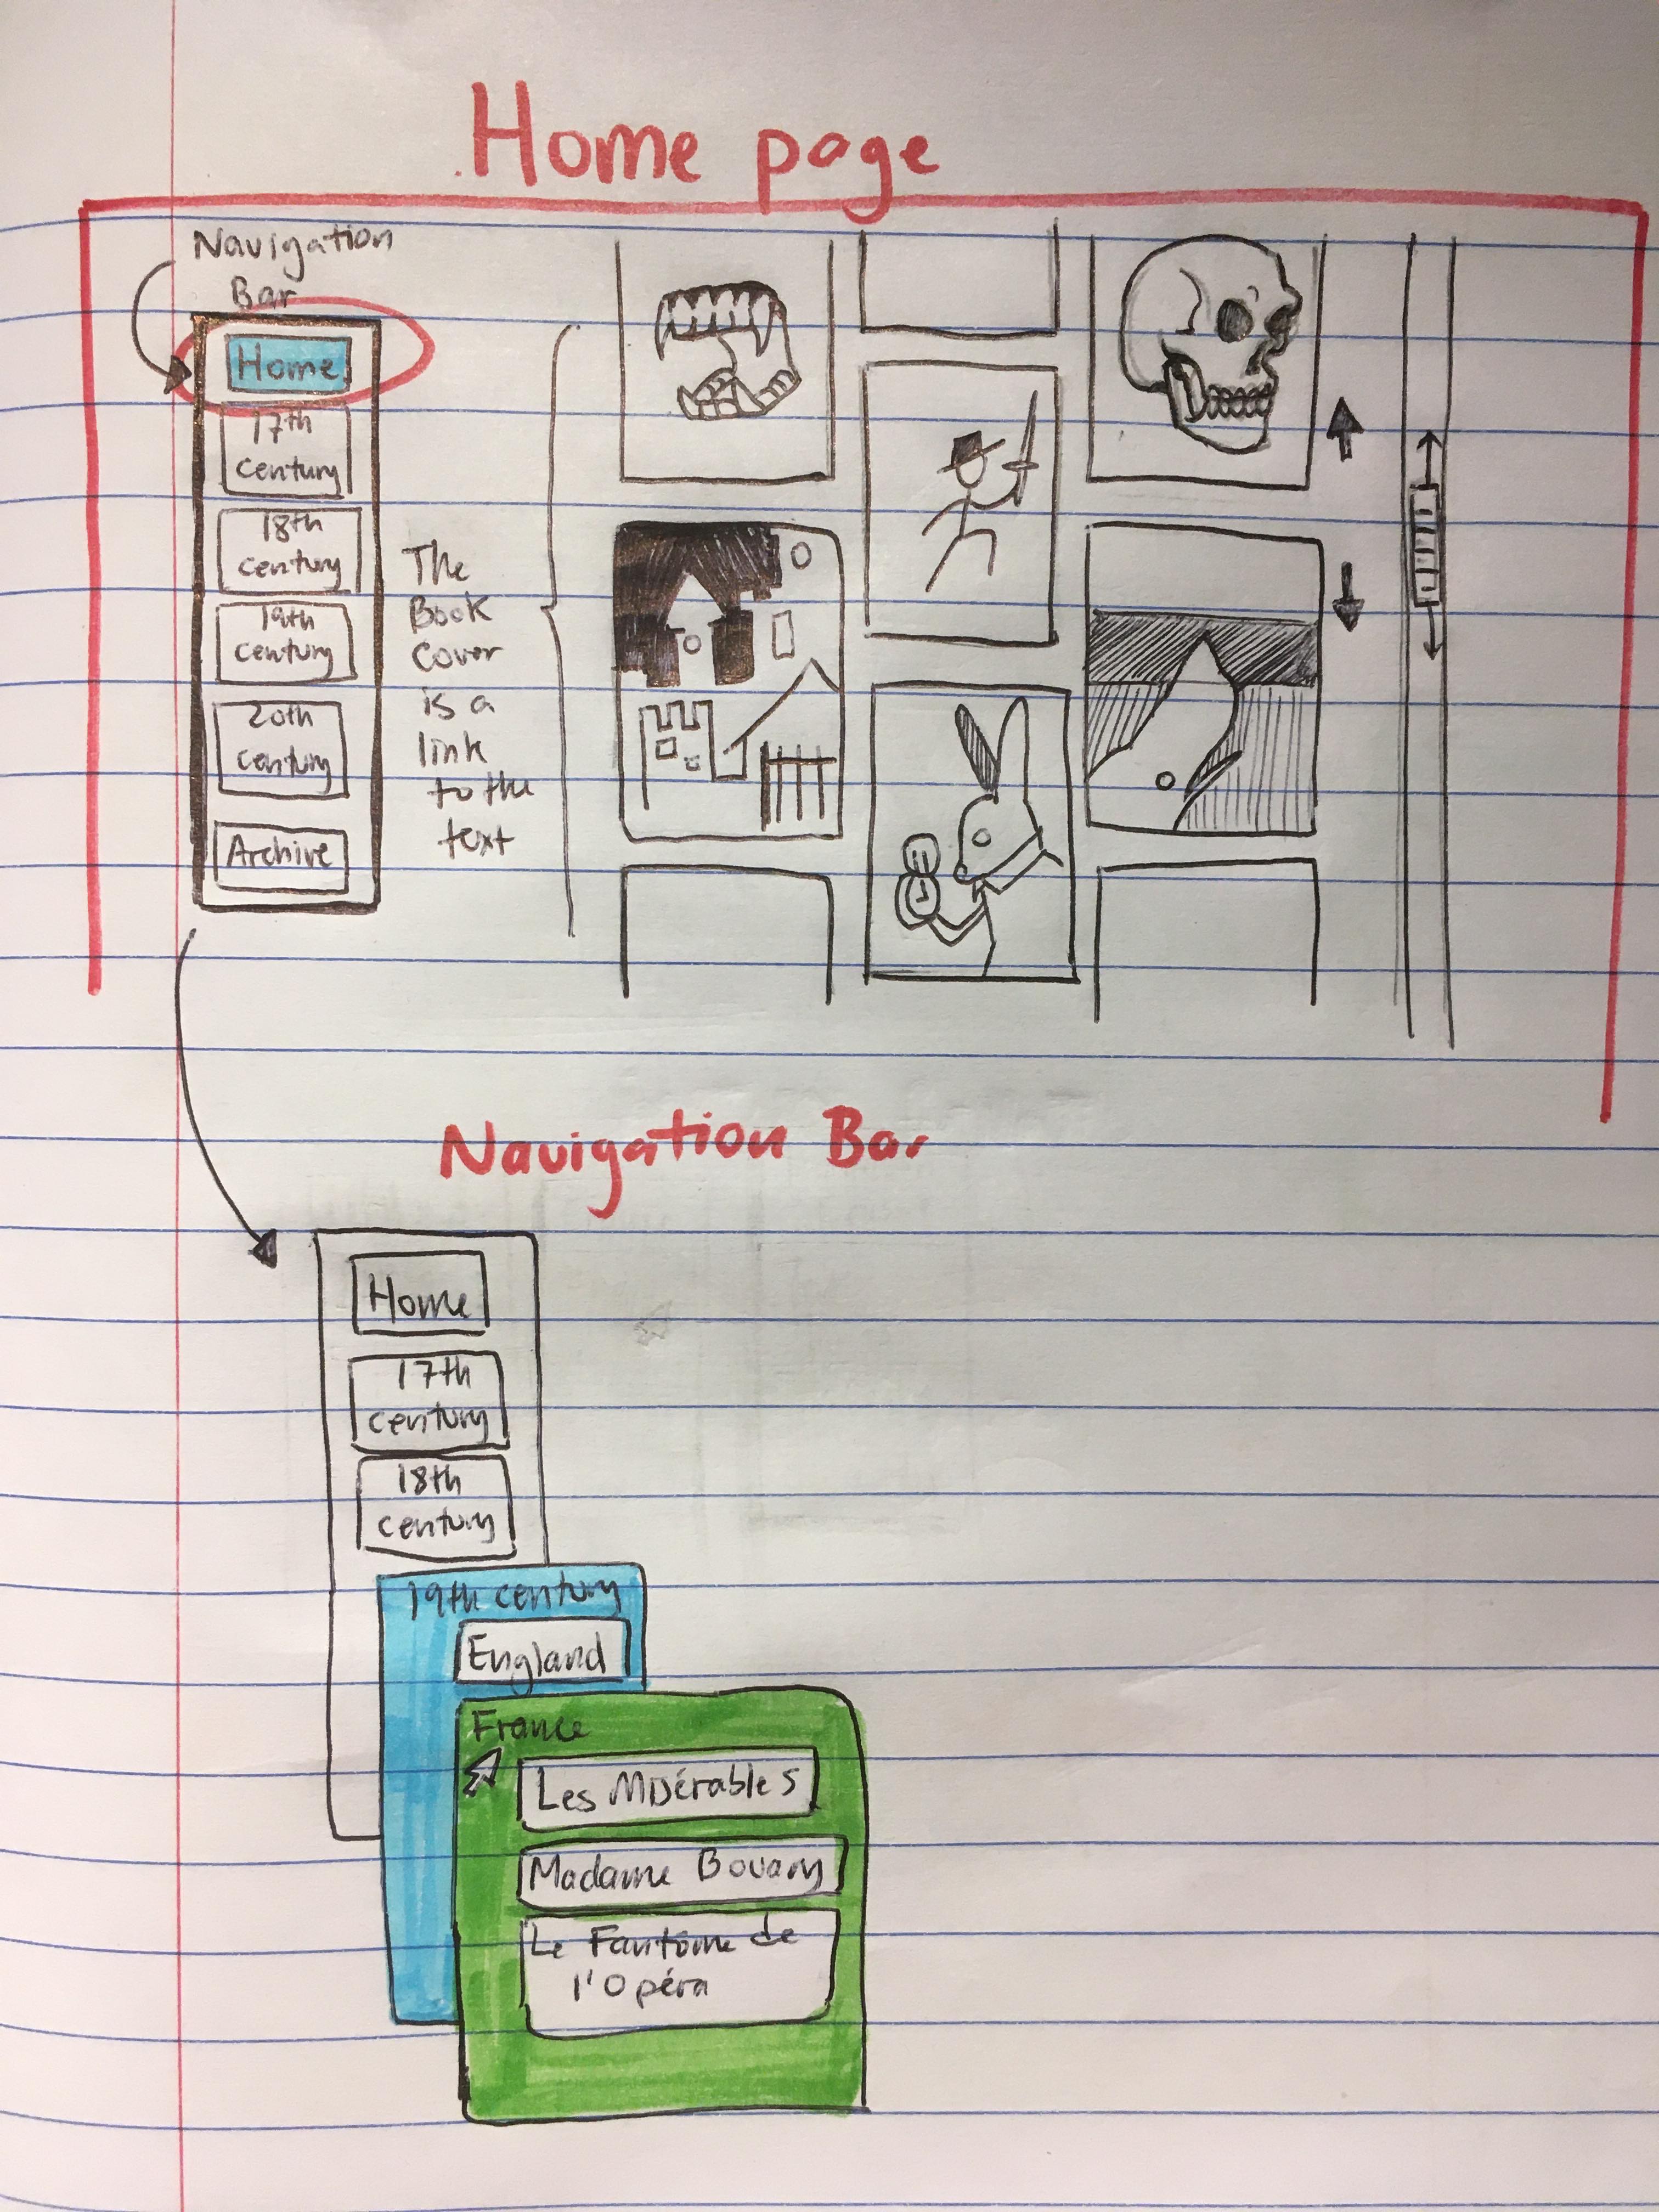 Home page
Navigation
Bar
Home
17th
century
18th
century
19th
century
20th
century
Archive
The
Book
cover
is a
link
to the
text
Navigation Bar
Home
17th
century
18th
century
19th century
England
France
Les Misérables
Madame Bovary
Le Fantôme de
l'Opéra